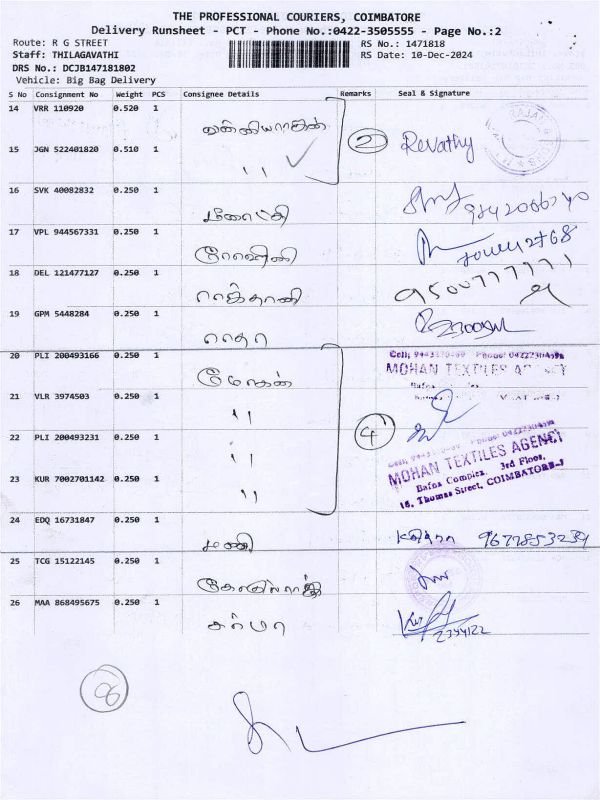 THE PROFESSIONAL COURIERS, COIMBATORE
Delivery Runsheet - PCT - Phone No.:0422-3505555 - Page No.:2
Route: R G STREET
RS No.: 1471818
Staff: THILAGAVATHI
RS Date: 10-Dec-2024
DRS No.: DCJB147181802
Vehicle: Big Bag Delivery
S No Consignment No Weight PCS Consignee Details Remarks Seal & Signature
14 VRR 110920 0.520 1
2 Revathy
15 JGN 522401820 0.510 1
"
16 SVK 40082832 0.250 1
மீனாட்சி
17 VPL 944567331 0.250 1
ரோஹிணி
18 DEL 121477127 0.250 1
ராக்தானி 9500777771
19 GPM 5448284 0.250 1
ராதா
20 PLI 200493166 0.250 1
மோகன்
MOHAN TEXTILES AGENCY
21 VLR 3974503 0.250 1
"
4
22 PLI 200493231 0.250 1
"
MOHAN TEXTILES AGENCY
Bafna Complex, 3rd Floor,
16, Thomas Street, COIMBATORE-1
23 KUR 7002701142 0.250 1
"
24 EDQ 16731847 0.250 1
மணி 9677853239
25 TCG 15122145 0.250 1
26 MAA 868495675 0.250 1
சர்மா
2344122